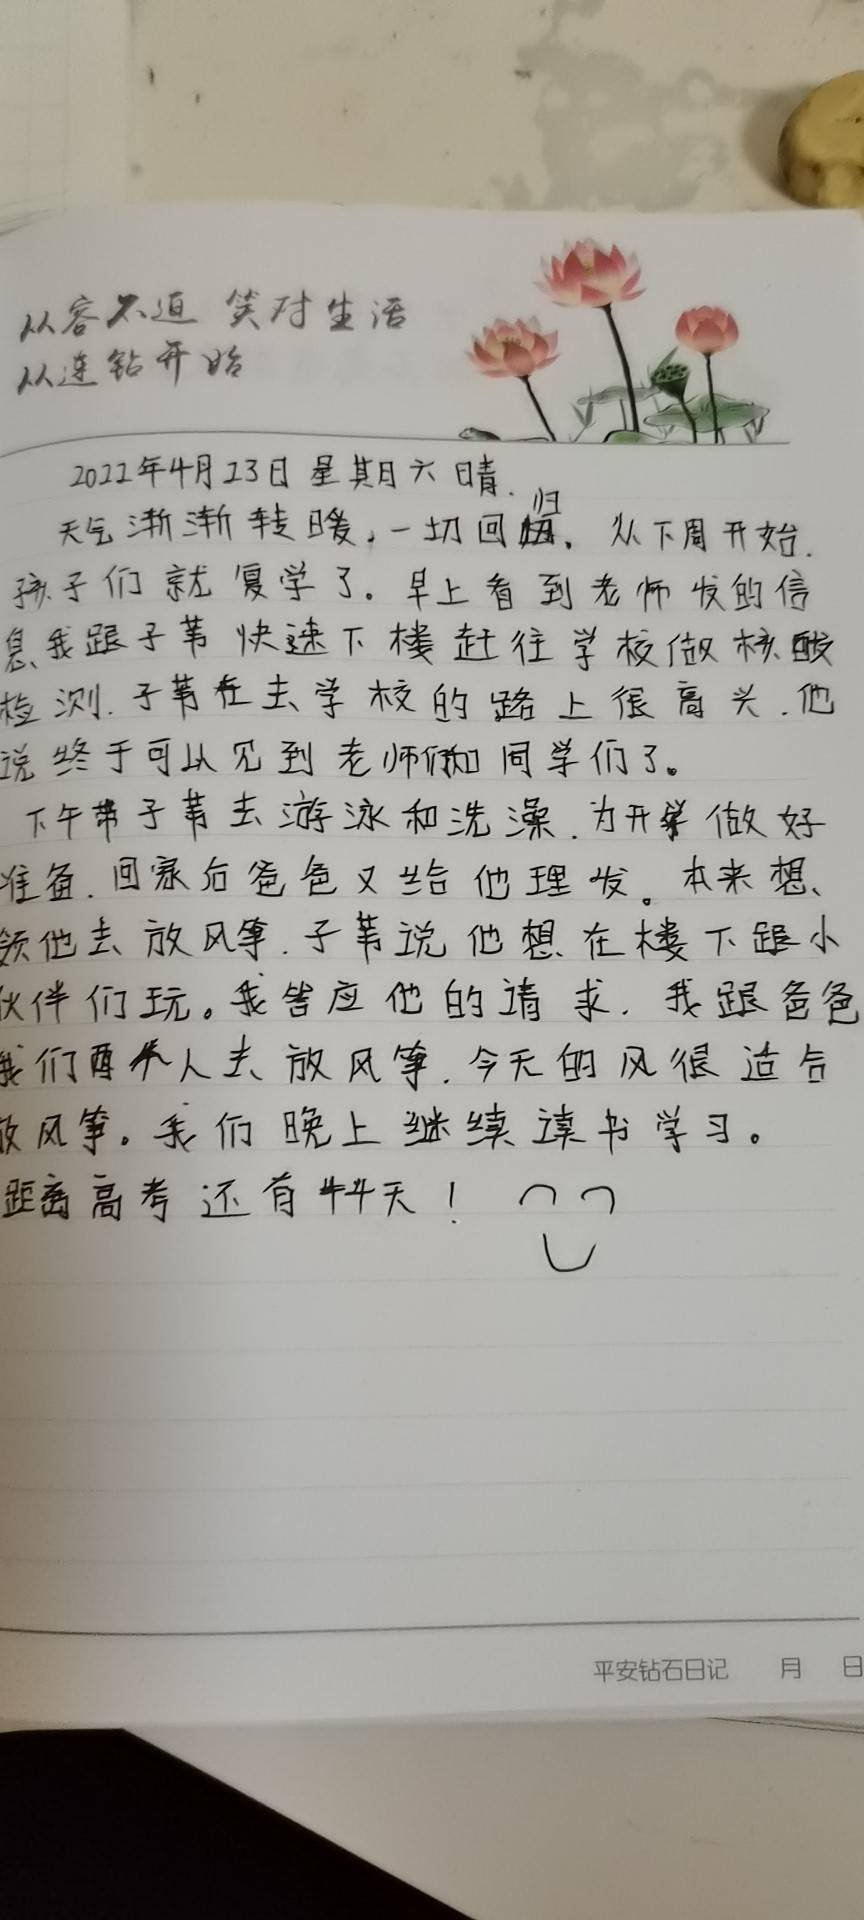 从容不迫 笑对生活
从连钻开始
2022年4月23日 星期六 晴.
天气渐渐转暖，一切回归。从下周开始.
孩子们就复学了。早上看到老师发的信
息、我跟子苇快速下楼赶往学校做核酸
检测.子苇在去学校的路上很高兴.他
说终于可以见到老师们和同学们了。
下午带子苇去游泳和洗澡.为开学做好
准备.回家后爸爸又给他理发。本来想、
领他去放风筝.子苇说他想在楼下跟小
伙伴们玩。我答应他的请求.我跟爸爸
我们两个人去放风筝.今天的风很适合
放风筝。我们晚上继续读书学习。
距离高考还有天！
平安钻石日记 月 日